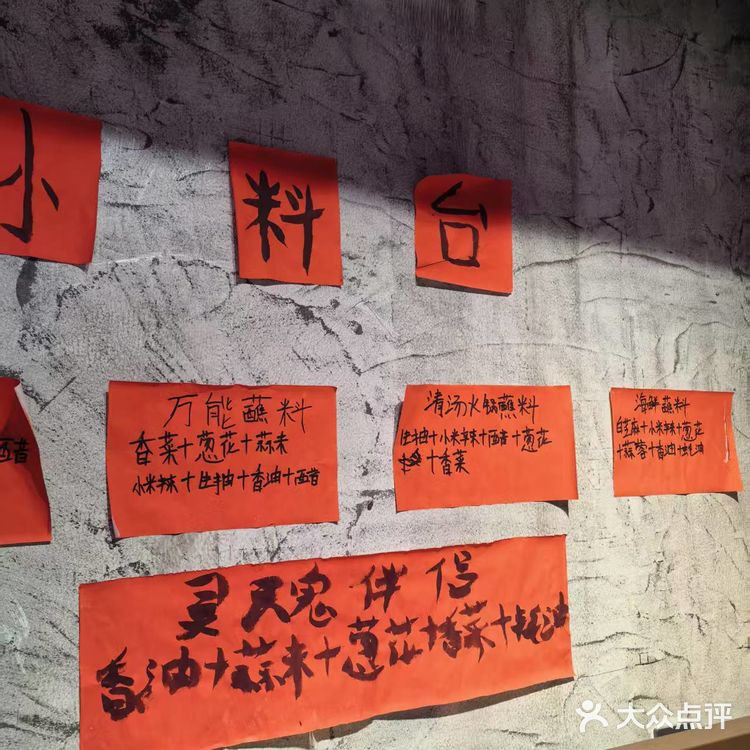 小料台
醋
万能蘸料
香菜+葱花+蒜末
小米辣+生抽+香油+醋
清汤火锅蘸料
生抽+小米辣+醋+葱花
+香菜
海鲜蘸料
白芝麻+小米辣+葱花
+蒜蓉+香油+蚝油
灵魂伴侣
香油+蒜末+葱花+香菜+蚝油
大众点评